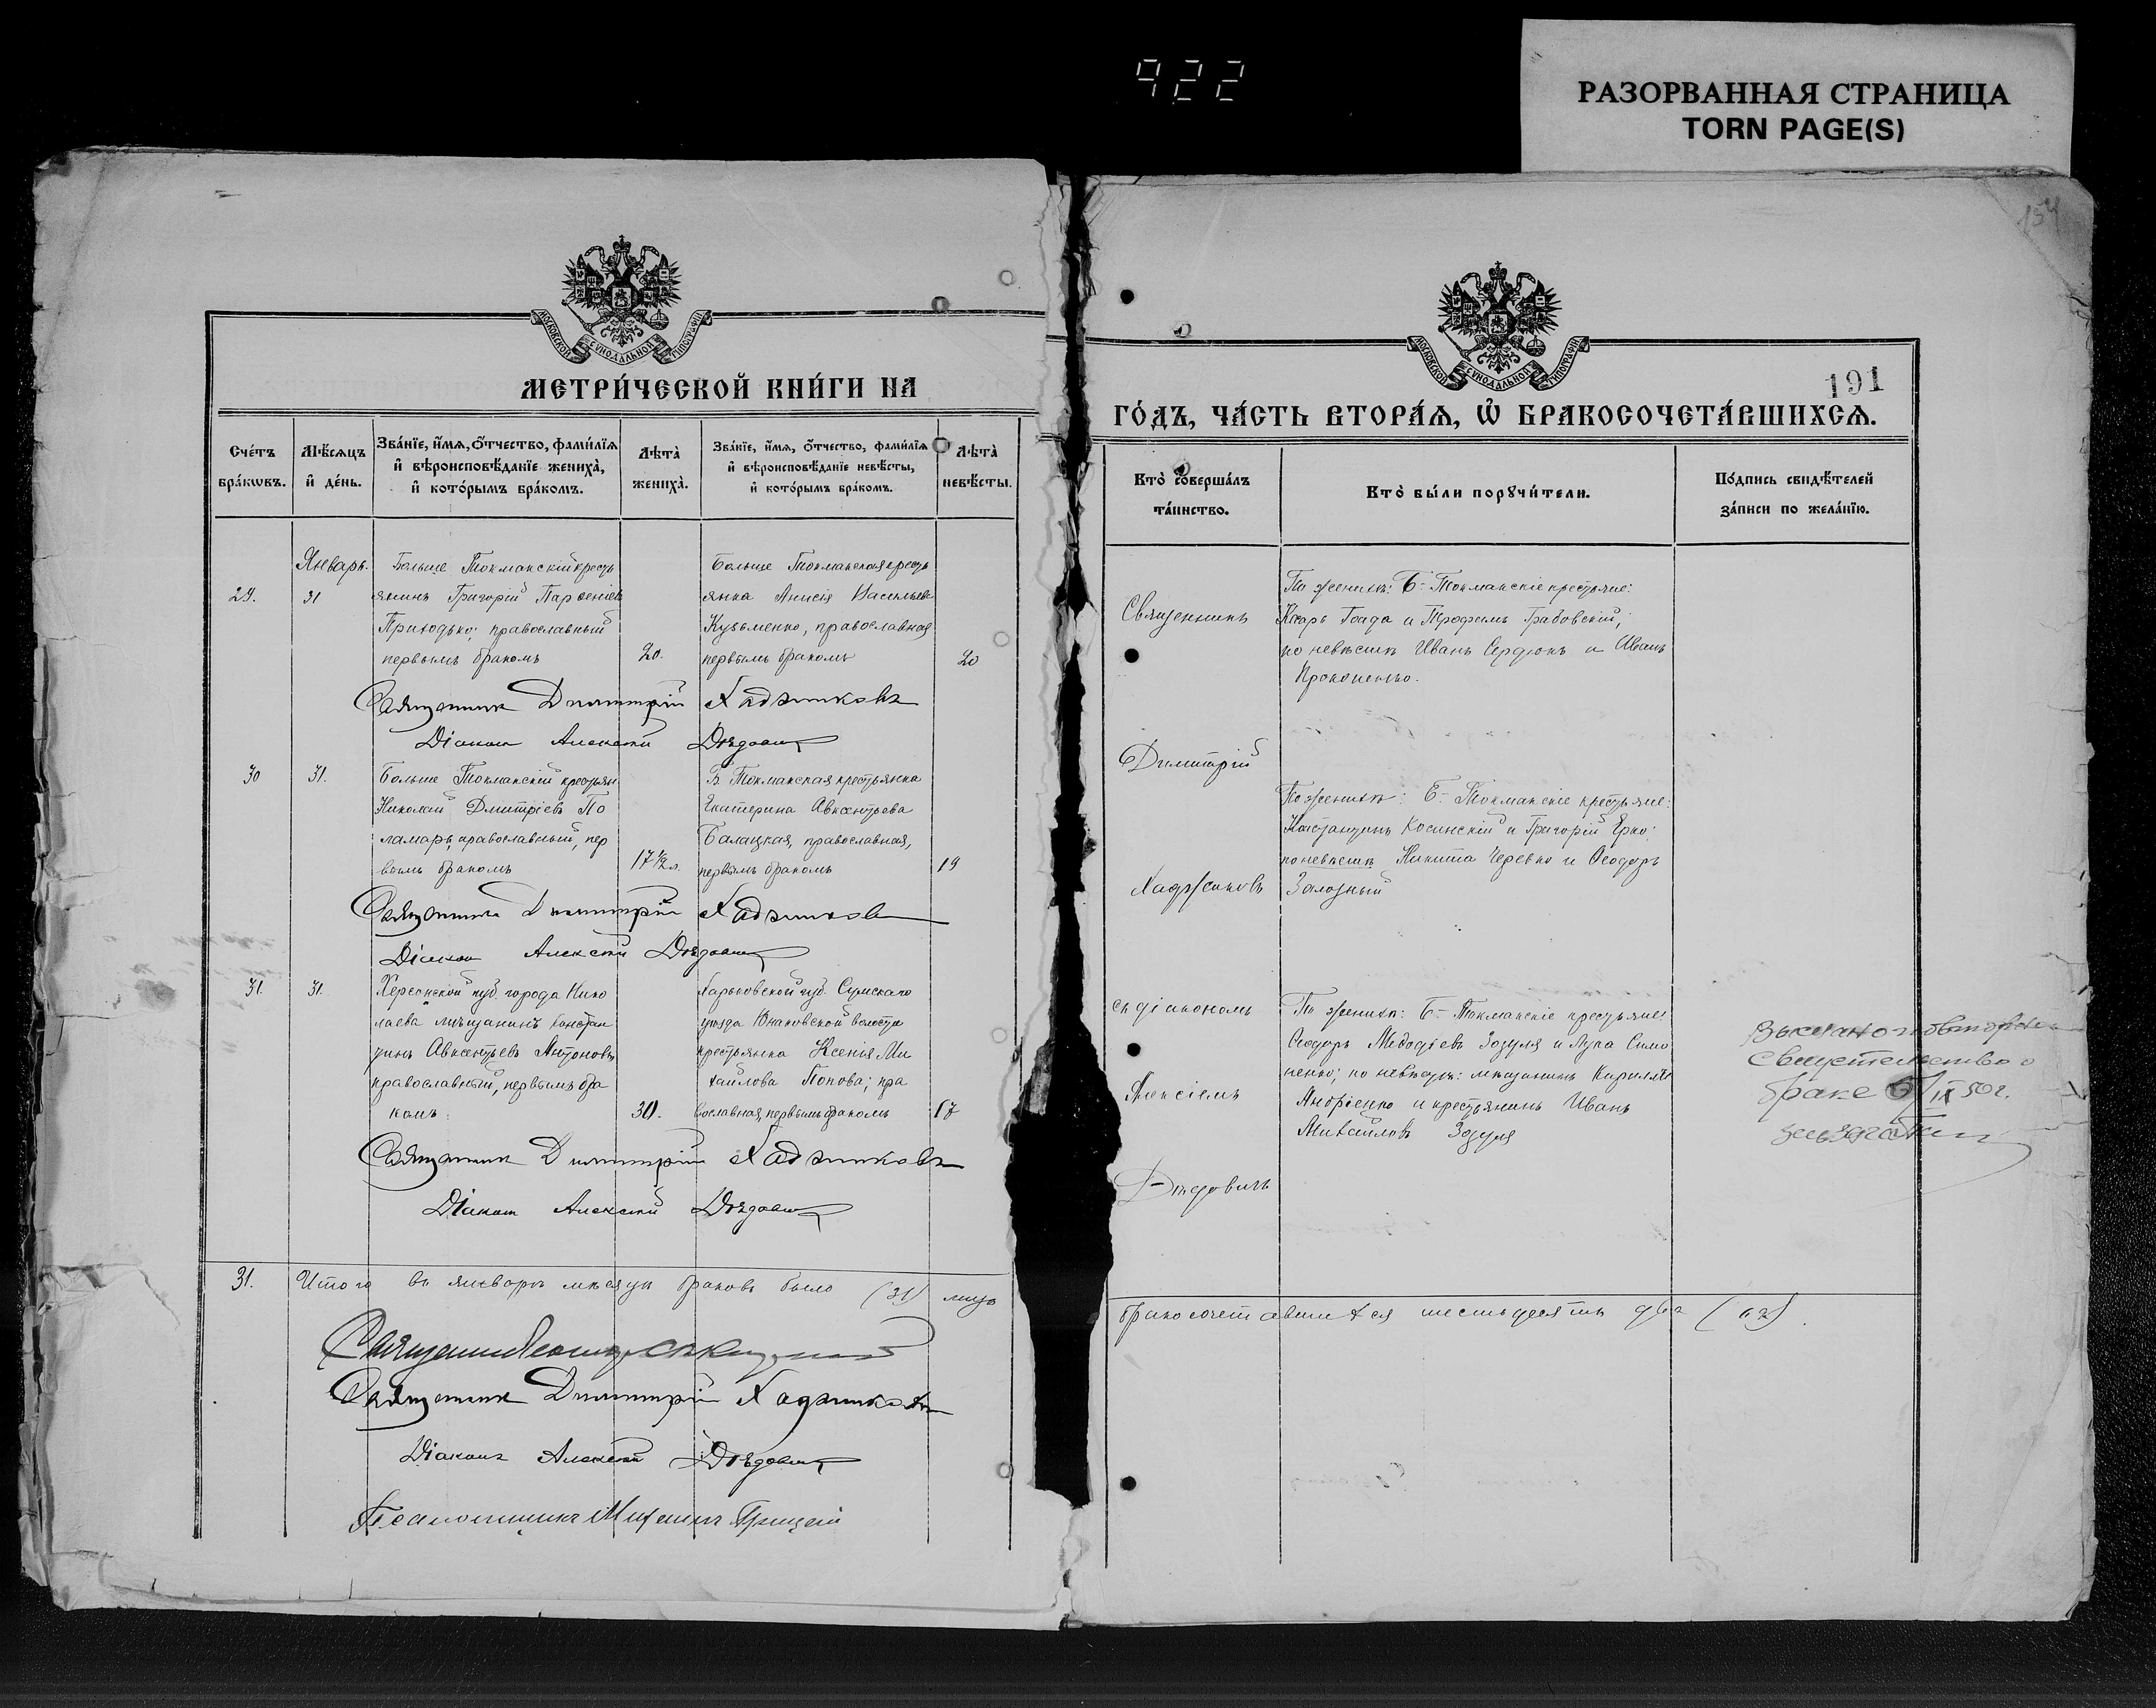 922
РАЗОРВАННАЯ СТРАНИЦА
TORN PAGE(S)
154
191
МОСКОВСКОЙ СУНОДАЛЬНОЙ ТИПОГРАФІИ
МЕТРИ́ЧЕСКОЙ КНИ́ГИ НА
Сче́тъ бра́кѡвъ.
Мѣ́сяцъ и҆ де́нь.
Зва́нїе, и҆́мѧ, ѻ҆́тчество, фами́лїѧ и҆ вѣроисповѣ́данїе жениха̀, и҆ кото́рымъ бра́комъ.
Лѣта̀ жениха̀.
Зва́нїе, и҆́мѧ, ѻ҆́тчество, фами́лїѧ и҆ вѣроисповѣ́данїе невѣ́сты, и҆ кото́рымъ бра́комъ.
Лѣта̀ невѣ́сты.
Январь.
29.
31
Больше Токманскій кресть
янинъ Григорій Парѳеніев
Приходько; православный
первымъ бракомъ
20.
Больше Токманская кресть
янка Анисія Васильева
Кузьменко, православная
первымъ бракомъ
20
Священникъ Димитрій Хаджиковъ
Діаконъ Алексѣй Дѣдовичъ
30
31.
Больше Токманскій крестьян
Николай Дмитріевъ По
ламарь, православный, пер
вымъ бракомъ
17½ л.
Б. Токманская крестьянка
Екатерина Авксентьева
Балацкая, православная,
первымъ бракомъ
19
Священникъ Димитрій Хаджиковъ
Діаконъ Алексѣй Дѣдовичъ
31.
31.
Херсонской губ. города Нико
лаева мѣщанинъ Констан
тинъ Авксентьевъ Антоновъ
православный, первымъ бра
комъ.
30.
Харьковской губ. Сумскаго
уѣзда Юнаковской волости
крестьянка Ксенія Ми
хайлова Попова; пра
вославная, первымъ бракомъ
17
Священникъ Димитрій Хаджиковъ
Діаконъ Алексѣй Дѣдовичъ
31.
Итого въ январѣ мѣсяцѣ браковъ было (31) лицъ
Священникъ
Священникъ Димитрій Хаджиковъ
Діаконъ Алексѣй Дѣдовичъ
Псаломщикъ
МОСКОВСКОЙ СУНОДАЛЬНОЙ ТИПОГРАФІИ
ГО́ДЪ, ЧА́СТЬ ВТОРА́Ѧ, Ѡ҆ БРАКОСОЧЕТА́ВШИХСѦ.
Кто̀ соверша́лъ та́инство.
Кто̀ бы́ли порꙋчи́тели.
По́дпись свидѣ́телей за́писи по жела́нїю.
Священникъ
Димитрій
Хаджиковъ
съ діакономъ
Алексіемъ
Дѣдовичъ
По женихѣ: Б-Токманскіе крестьяне:
Гайда и Трофимъ Грабовскій;
по невѣстѣ Иванъ Сердюкъ и Иванъ
Прокопенко.
По женихѣ: Б-Токманскіе крестьяне:
Константинъ Косинскій и Григорій Ерко;
по невѣстѣ Никита Черевко и Ѳеодоръ
Залозный
По женихѣ: Б-Токманскіе крестьяне:
Ѳеодоръ Меѳодіевъ Зозуля и Лука Симо
ненко; по невѣстѣ: мѣщанинъ Кириллъ
Андріенко и крестьянинъ Иванъ
Михайловъ Зозуля
Выслано повторное
Свидетельство о
браке 6/IX 50 г.
бракосочетавшихся шестьдесятъ два (62).